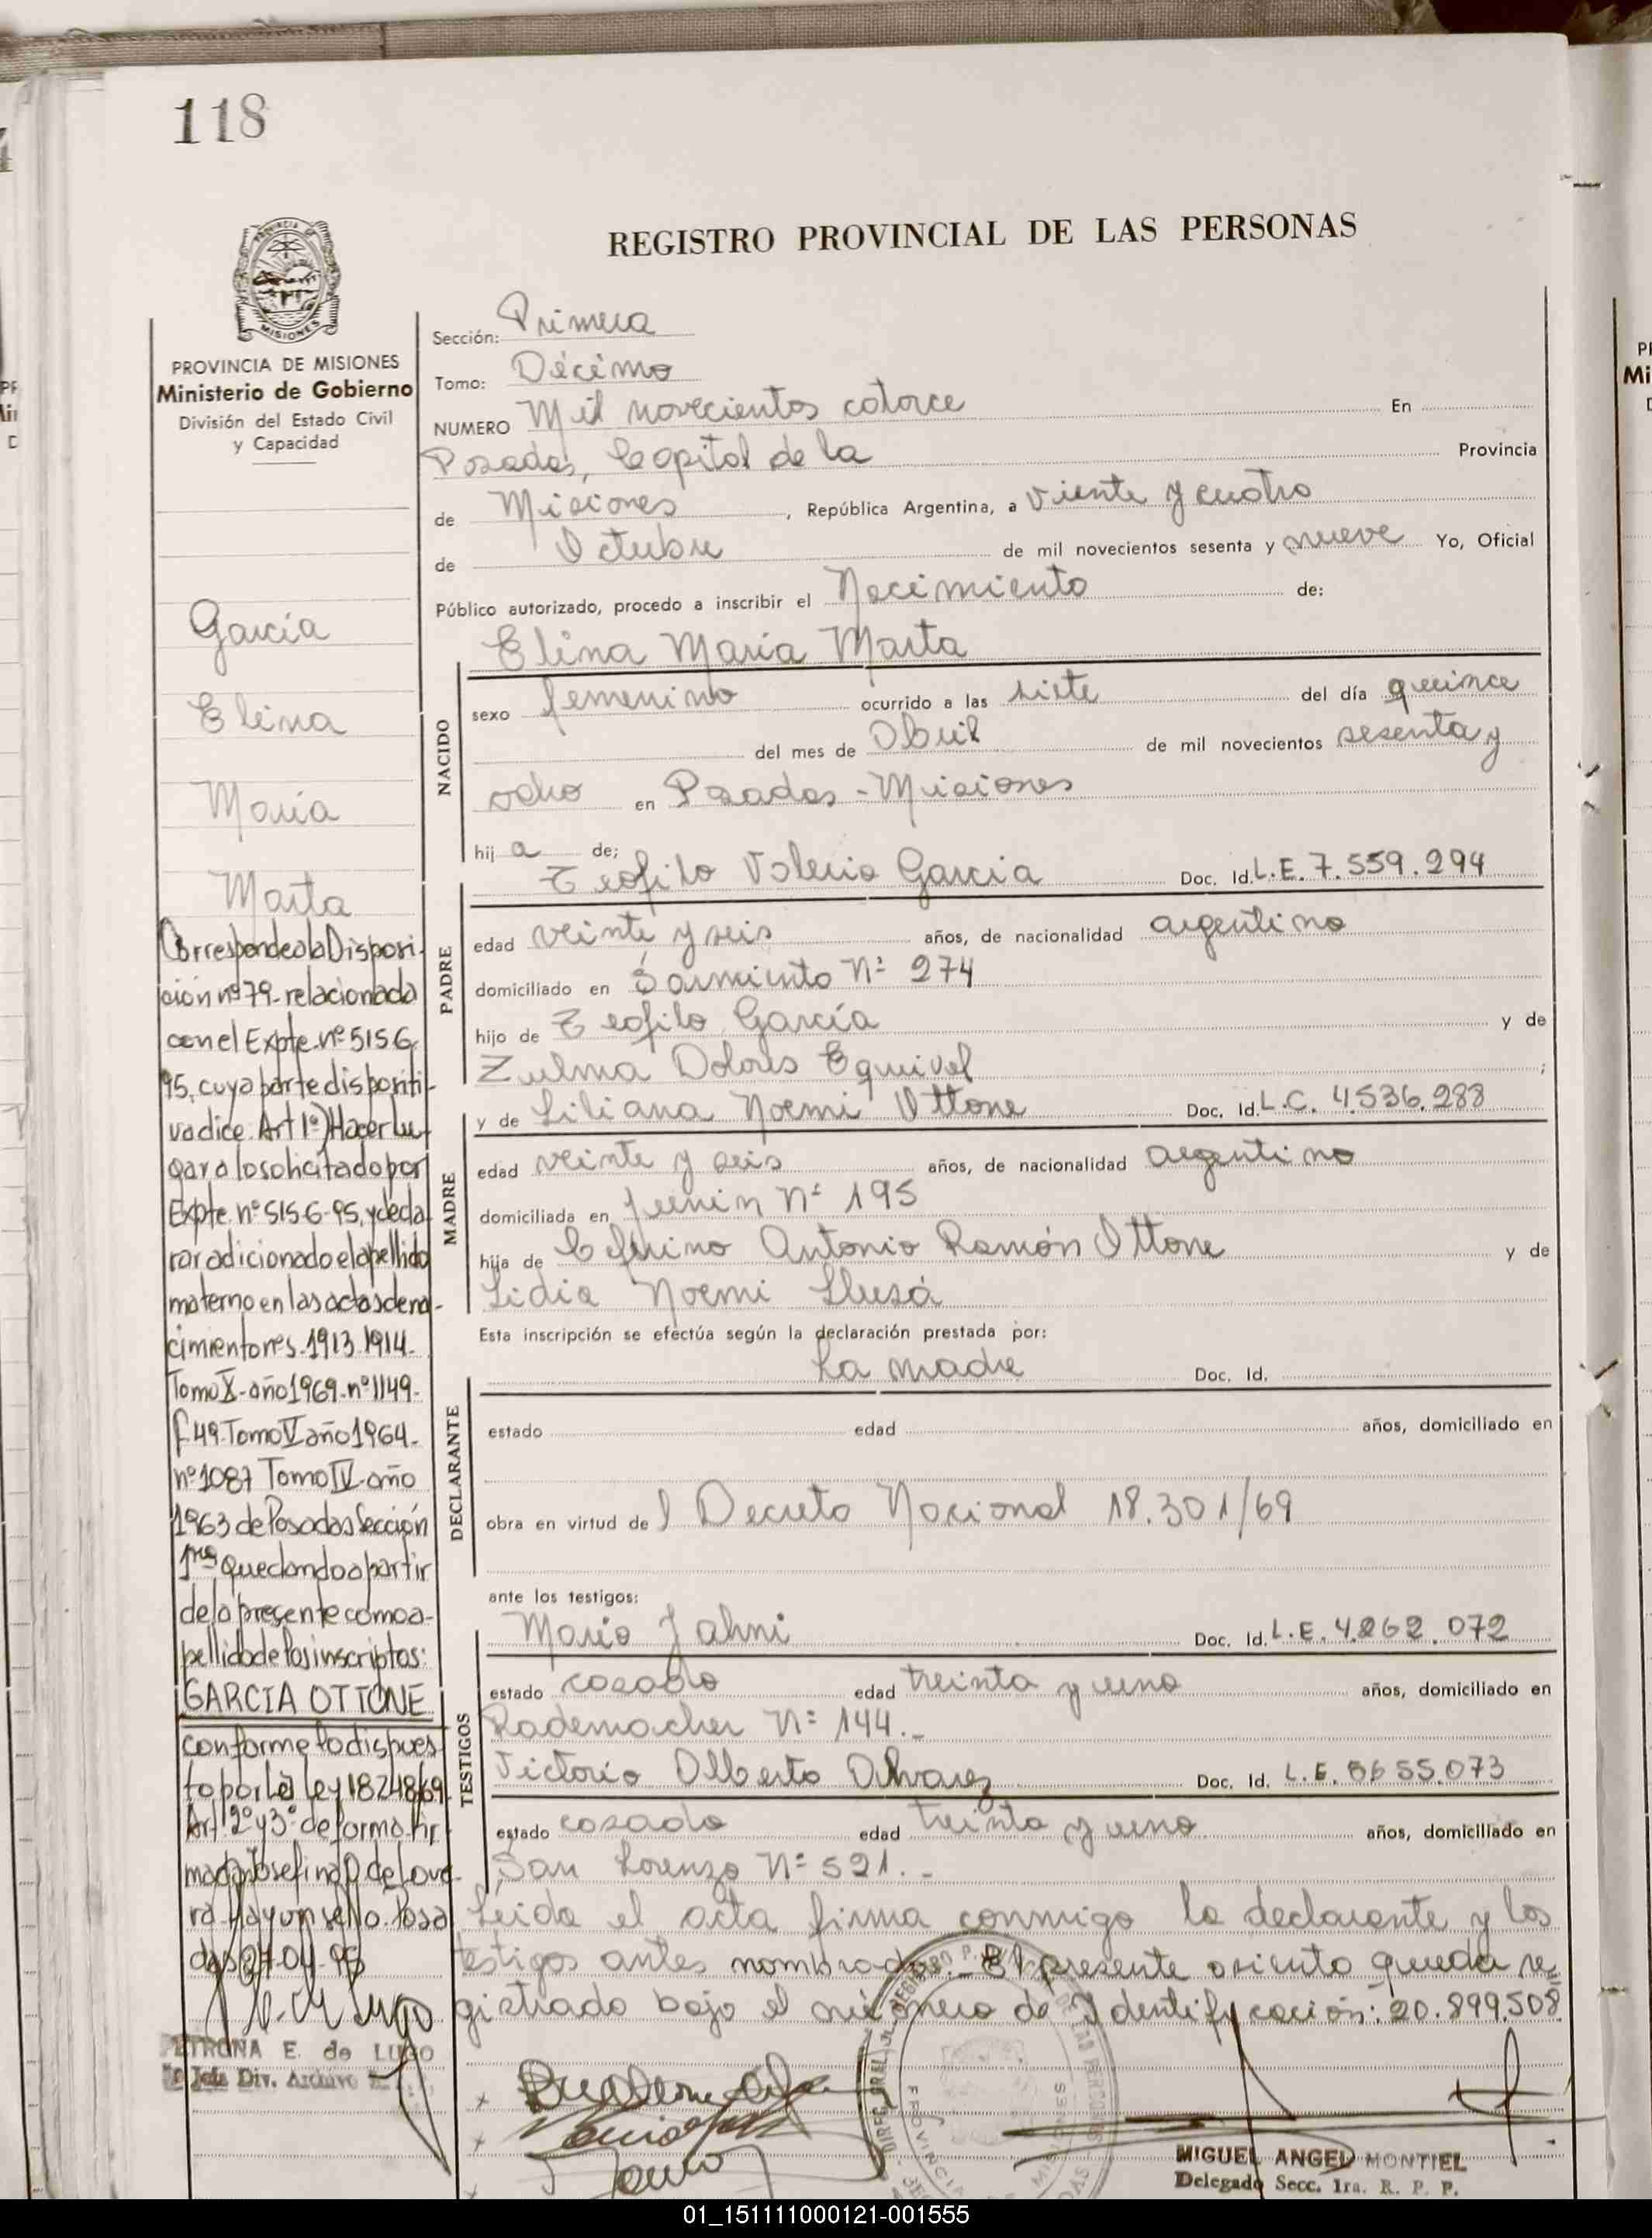 118
REGISTRO PROVINCIAL DE LAS PERSONAS
MISIONES
PROVINCIA DE MISIONES
Ministerio de Gobierno
División del Estado Civil
y Capacidad
García
Elina
María
Marta
Corresponde a la Disposi-
ción nº 79- relacionada
con el Expte. nº 5156
95, cuya parte dispositi-
va dice. Art 1º) Hacer lu-
gar a lo solicitado por
Expte. nº 5156-95, y decla
rar adicionado el apellido
materno en las actas de na-
cimiento nºs. 1913. 1914-
Tomo X- año 1969- nº 1149-
f 49. Tomo V año 1964-
nº 1087 Tomo IV- año
1963 de Posadas Sección
1ra quedando a partir
de la presente como a-
pellido de los inscriptos:
GARCIA OTTONE
conforme lo dispues
to por la ley 18248/69
Art. 2º y 3º de forma. fir
mada Josefina D. de Love
ra. Hay un sello. Posa
das 27-04-95
PETRONA E. de LUGO
Jefe Div. Archivo
Sección: Primera
Tomo: Décimo
NUMERO Mil novecientos catorce En
Posadas, Capital de la Provincia
de Misiones, República Argentina, a viente y cuatro
de Octubre de mil novecientos sesenta y nueve Yo, Oficial
Público autorizado, procedo a inscribir el Nacimiento de:
NACIDO
Elina María Marta
sexo femenino ocurrido a las siete del día quince
del mes de Abril de mil novecientos sesenta y
ocho en Posadas - Misiones
hij a de;
PADRE
Teofilo Valerio García Doc. Id. L.E. 7.559.294
edad veinte y seis años, de nacionalidad argentino
domiciliado en Sarmiento Nº 274
hijo de Teofilo García y de
Zulma Dolores Equivel ;
MADRE
y de Liliana Noemi Ottone Doc. Id. L.C. 4.536.288
edad veinte y seis años, de nacionalidad argentina
domiciliada en Junin Nº 195
hija de Ceferino Antonio Ramón Ottone y de
Lidia Noemi Llusá
Esta inscripción se efectúa según la declaración prestada por:
DECLARANTE
La madre Doc. Id.
estado edad años, domiciliado en
obra en virtud de l Decreto Nacional 18.301/69
ante los testigos:
TESTIGOS
Mario Jahni Doc. Id. L.E. 4.262.072
estado casado edad treinta y uno años, domiciliado en
Rademacher Nº 144.-
Victorio Alberto Alvarez Doc. Id. L.E. 5655.073
estado casado edad treinta y uno años, domiciliado en
San Lorenzo Nº 521.-
Leida el acta firma conmigo la declarante y los
testigos antes nombrados.- El presente asiento queda re
gistrado bajo el número de Identificación: 20.899.508
MIGUEL ANGEL MONTIEL
Delegado Secc. 1ra. R. P. P.
01_151111000121-001555